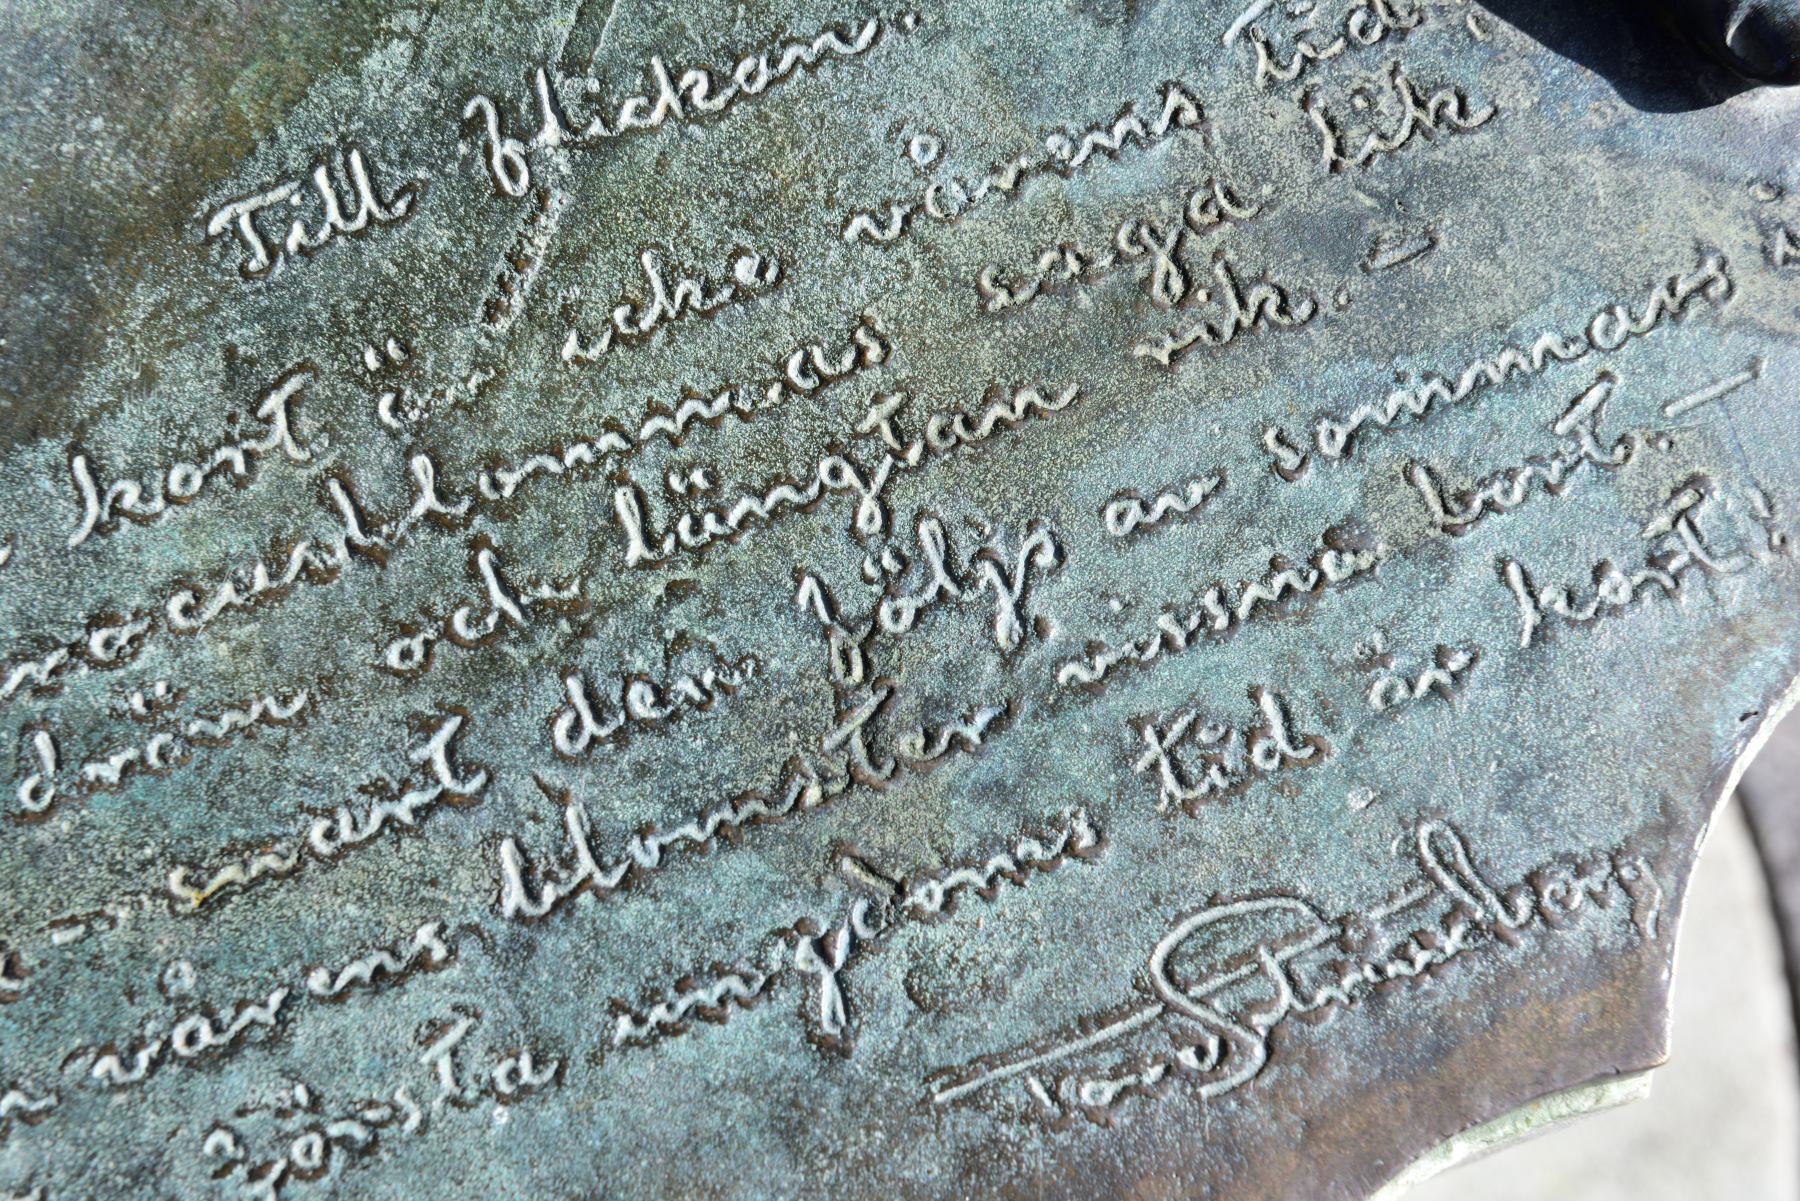 Till flickan.
kort är icke vårens tid,
vacushlommas saga lik
dröm och längtan rik. –
– snart den följs av sommars
vårens blomster vissna bort. –
första ungdoms tid är kort!
Tore Strindberg